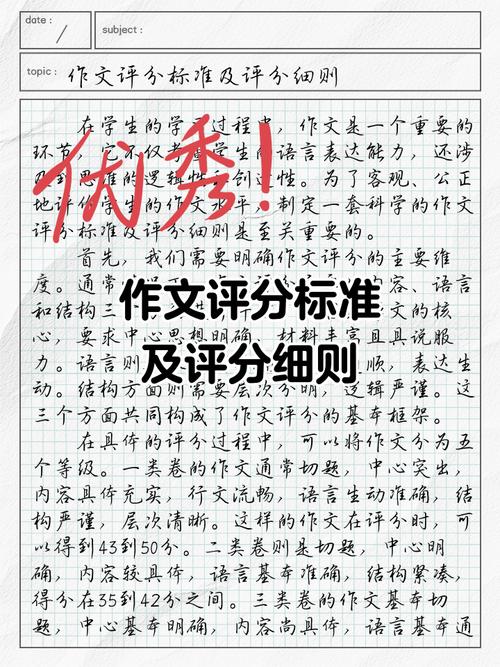 date :
subject :
topic : 作文评分标准及评分细则
在学生的学习过程中，作文是一个重要的
环节，它不仅考 学生的语言表达能力，还涉
及到思维的逻辑性和创造性。为了客观、公正
地评价学生的作文水平，制定一套科学的作文
评分标准及评分细则是至关重要的。
优秀！
首先，我们需要明确作文评分的主要维
度。通常 内容、语言
和结构三 文的核
心，要求中心思想明确，材料丰富且具说服
力。语言则 顺，表达生
动。结构方面则需要层次分明，逻辑严谨。这
作文评分标准
及评分细则
三个方面共同构成了作文评分的基本框架。
在具体的评分过程中，可以将作文分为五
个等级。一类卷的作文通常切题，中心突出，
内容具体充实，行文流畅，语言生动准确，结
构严谨，层次清晰。这样的作文在评分时，可
以得到43到50分。二类卷则是切题，中心明
确，内容较具体，语言基本准确，结构紧凑，
得分在35到42分之间。三类卷的作文基本切
题，中心基本明确，内容尚具体，语言基本通